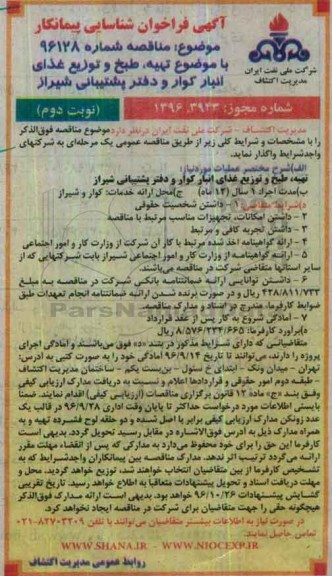 آگهی فراخوان شناسایی پیمانکار
موضوع: مناقصه شماره ۹۶۱۲۸
با موضوع تهیه، طبخ و توزیع غذای
انبار کوار و دفتر پشتیبانی شیراز
شرکت ملی نفت ایران
مدیریت اکتشاف
شماره مجوز: ۱۳۹۶.۳۹۴۳
(نوبت دوم)
مدیریت اکتشاف - شرکت ملی نفت ایران درنظر دارد موضوع مناقصه فوق‌الذکر
را با مشخصات و شرایط کلی زیر از طریق مناقصه عمومی یک مرحله‌ای به شرکتهای
واجدشرایط واگذار نماید.
الف)شرح مختصر عملیات موردنیاز:
تهیه طبخ و توزیع غذای انبار کوار و دفتر پشتیبانی شیراز
ب)مدت اجرا: ۱ سال (۱۲ ماه) ج)محل ارائه خدمات: کوار و شیراز
د)شرایط متقاضی: ۱ - داشتن شخصیت حقوقی
۲ - داشتن امکانات، تجهیزات مناسب مرتبط با مناقصه
۳ - داشتن تجربه کافی و مرتبط
۴ - ارائه گواهینامه اخذ شده مرتبط با کار آن شرکت از وزارت کار و امور اجتماعی
۵ - ارائه گواهینامه از وزارت کار و امور اجتماعی شیراز بابت شرکتهایی که از
سایر استانها متقاضی شرکت در مناقصه می‌باشند.
۶ - داشتن توانایی ارائه ضمانتنامه بانکی شرکت در مناقصه به مبلغ
۴۲۸/۸۱۱/۷۳۳ ریال و در صورت برنده شدن ارائه ضمانتنامه انجام تعهدات طبق
ضوابط کارفرما، مندرج در اسناد و مدارک مناقصه.
۷ - آمادگی شروع به کار پس از عقد قرارداد
ه)برآورد کارفرما: ۸/۵۷۶/۲۳۴/۶۶۵ ریال
متقاضیانی که دارای شرایط مذکور در بند «د» فوق می‌باشند و آمادگی اجرای
پروژه را دارند، می‌توانند تا تاریخ ۹۶/۹/۱۴ آمادگی خود را به صورت کتبی به آدرس:
تهران - میدان ونک - ابتدای خ سئول - بن‌بست یکم - ساختمان مدیریت اکتشاف
- طبقه دوم امور حقوقی و قراردادها اعلام و نسبت به دریافت مدارک ارزیابی کیفی
وفق بند «ج» ماده ۱۲ قانون برگزاری مناقصات (ارزیابی کیفی) اقدام نمایند. ضمنا
بایستی اطلاعات مورد درخواست حداکثر تا پایان وقت اداری ۹۶/۹/۲۸ در قالب یک
عدد زونکن مدارک ارزیابی کیفی برابر با اصل شده و دو حلقه لوح فشرده تهیه و به
همراه مدارک ذیل به آدرس فوق‌الاشاره در مقابل رسید تحویل گردد. بدیهی است
کارفرما این حق را برای خود محفوظ می‌دارد به مدارکی که پس از انقضاء مهلت مقرر
ارائه می‌گردد ترتیب اثر ندهد. مدارک مناقصه بین پیمانکاران واجدشرایط که به
تشخیص کارفرما از بین متقاضیان انتخاب خواهند شد، توزیع خواهد گردید. محل و
مهلت دریافت اسناد و تحویل پیشنهادات متعاقبا به اطلاع خواهد رسید. تاریخ تقریبی
گشایش پیشنهادات ۹۶/۱۰/۲۶ خواهد بود. بدیهی است ارائه مدارک فوق‌الذکر
هیچگونه حقی را جهت متقاضیان برای شرکت در مناقصه ایجاد نخواهد کرد.
در صورت نیاز به اطلاعات بیشتر متقاضیان می‌توانند با تلفن ۸۲۷۰۳۲۰۹-۰۲۱
تماس حاصل نمایند.
WWW.SHANA.IR - WWW.NIOCEXP.IR
روابط عمومی مدیریت اکتشاف